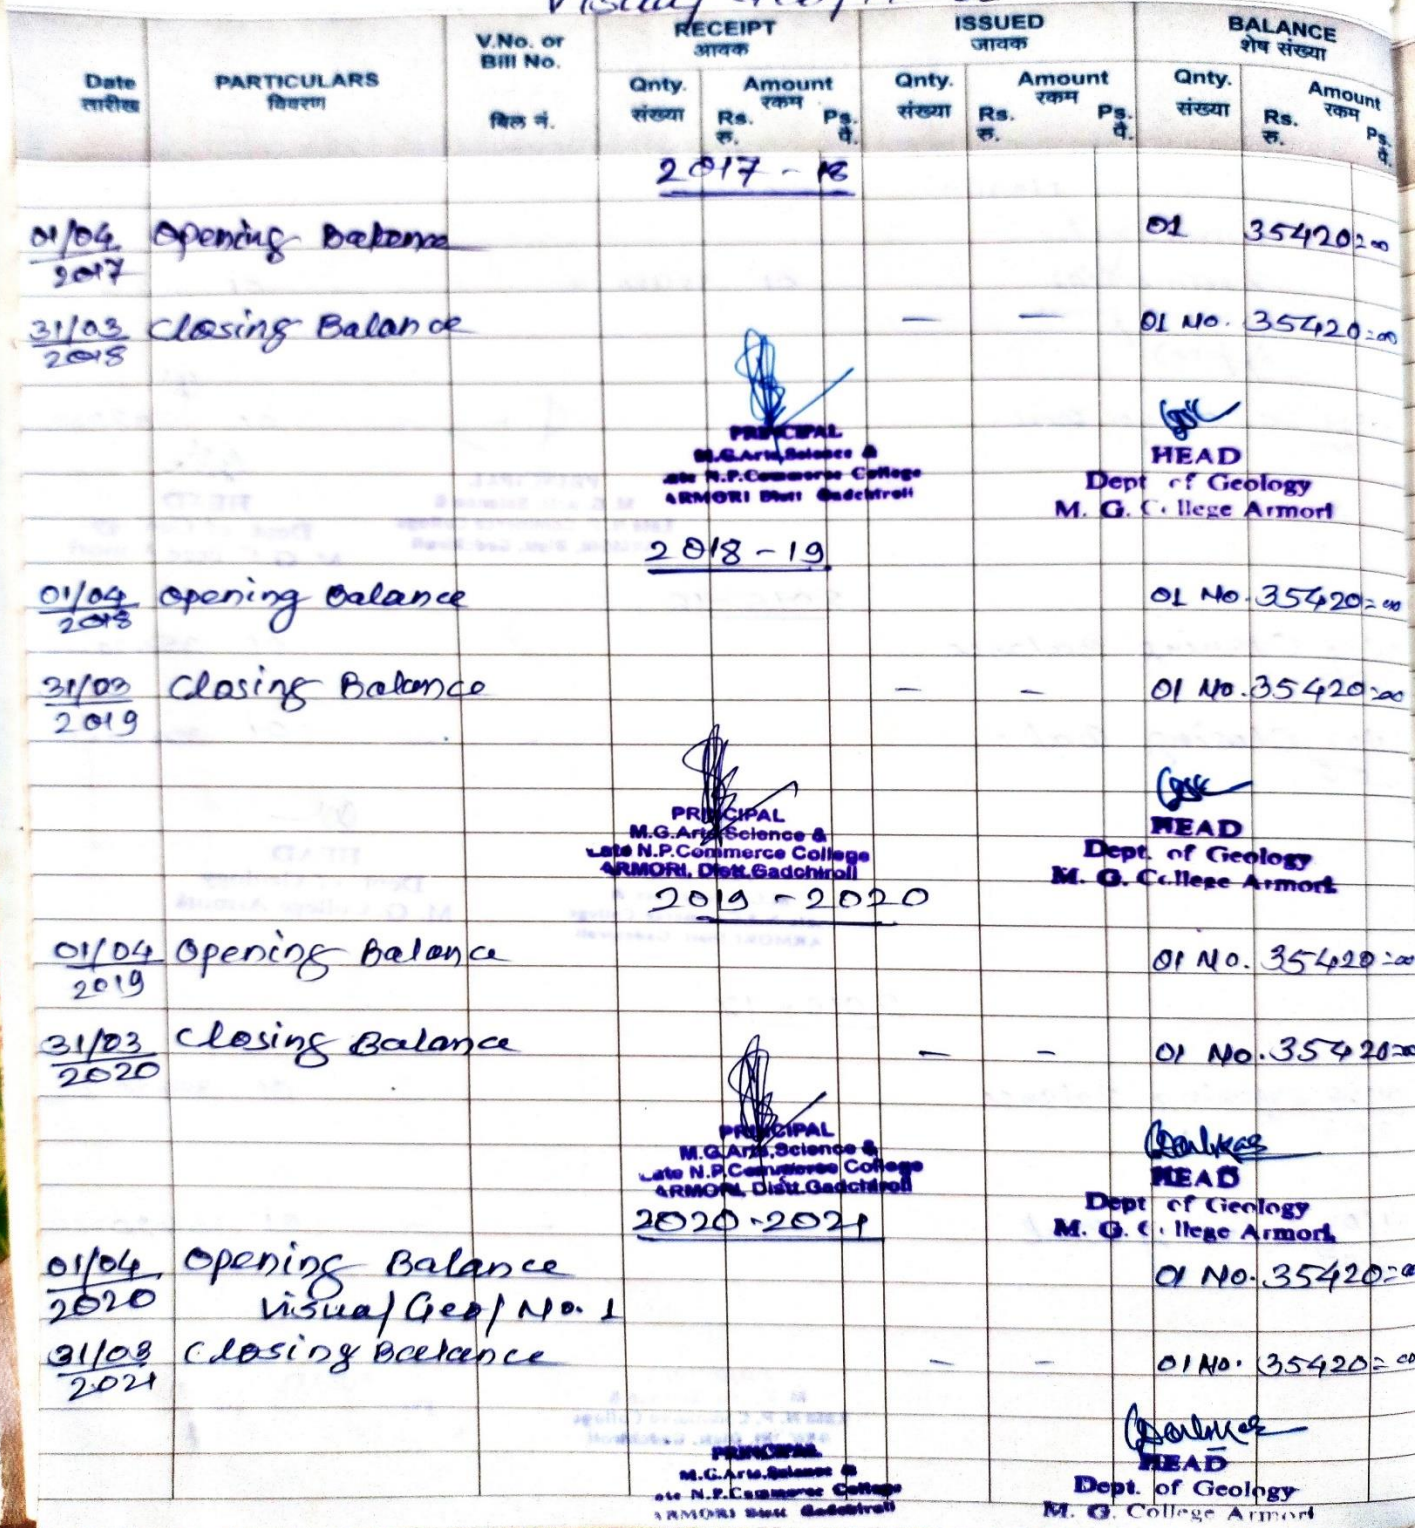 RECEIPT ISSUED BALANCE
आवक जावक शेष संख्या
Date PARTICULARS V.No. or Bill No. Qnty. Amount Qnty. Amount Qnty. Amount
तारीख विवरण बिल नं. संख्या रकम संख्या रकम संख्या रकम
Rs. Ps. Rs. Ps. Rs. Ps.
रु. पै. रु. पै. रु. पै.
2017 - 18
01/04 2017 Opening Balance 01 35420=00
31/03 2018 Closing Balance — — 01 No. 35420=00
PRINCIPAL
M.G.Arts,Science &
ate N.P.Commerce College
ARMORI Distt Gadchiroli
HEAD
Dept of Geology
M. G. College Armori
2018 - 19
01/04 2018 Opening Balance 01 No. 35420=00
31/03 2019 Closing Balance — — 01 No. 35420=00
PRINCIPAL
M.G.Arts,Science &
Late N.P.Commerce College
ARMORI, Distt.Gadchiroli
HEAD
Dept. of Geology
M. G. College Armori
2019 - 2020
01/04 2019 Opening Balance 01 No. 35420=00
31/03 2020 Closing Balance — — 01 No. 35420=00
PRINCIPAL
M.G.Arts,Science &
Late N.P.Commerce College
ARMORI, Distt.Gadchiroli
HEAD
Dept of Geology
M. G. College Armori
2020-2021
01/04 2020 Opening Balance 01 No. 35420=00
Visual/Geo/No. 1
31/03 2021 Closing Balance — — 01 No. 35420=00
PRINCIPAL
M.G.Arts,Science &
ate N.P.Commerce College
ARMORI Distt Gadchiroli
HEAD
Dept. of Geology
M. G. College Armori